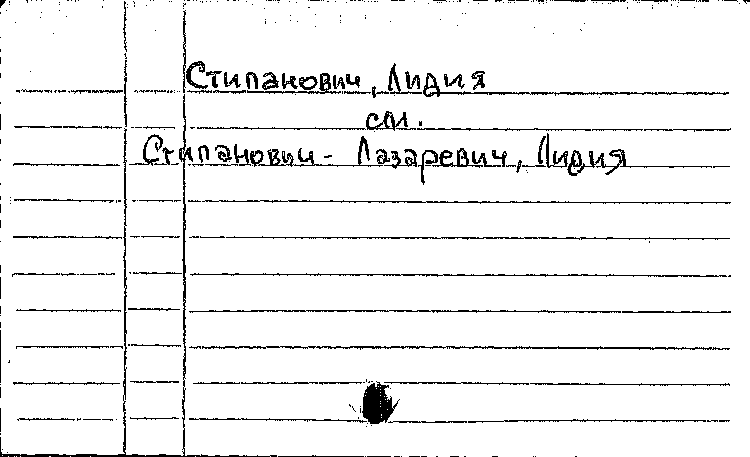 Стипанович, Лидия
см.
Стипанович - Лазаревич, Лидия